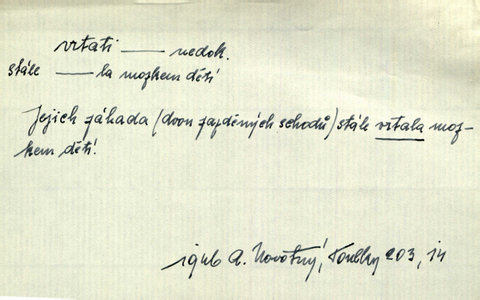 vrtati — nedok.
stále — la mozkem dětí
Jejich záhada (dvou zazděných schodů) stále vrtala moz-
kem dětí.
A. Novotný, Toulky 203, 14